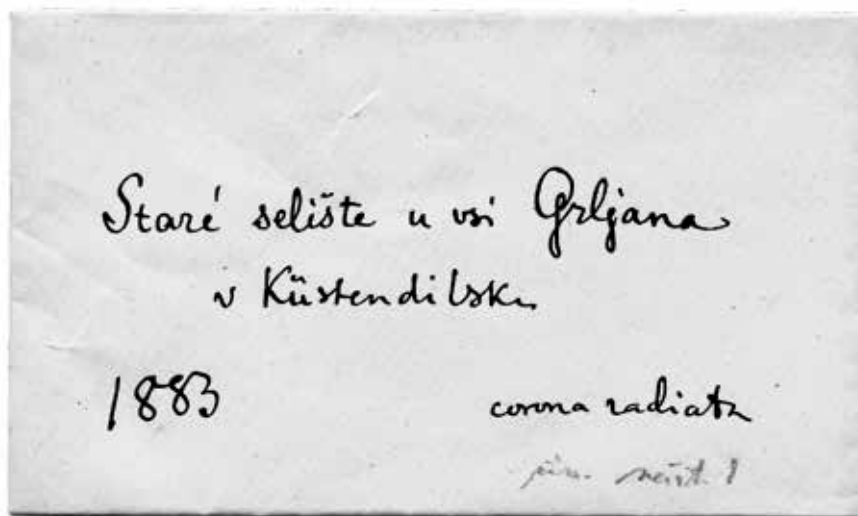 Staré selište u vsi Grljana
v Küstendilsku
1883
corona radiata